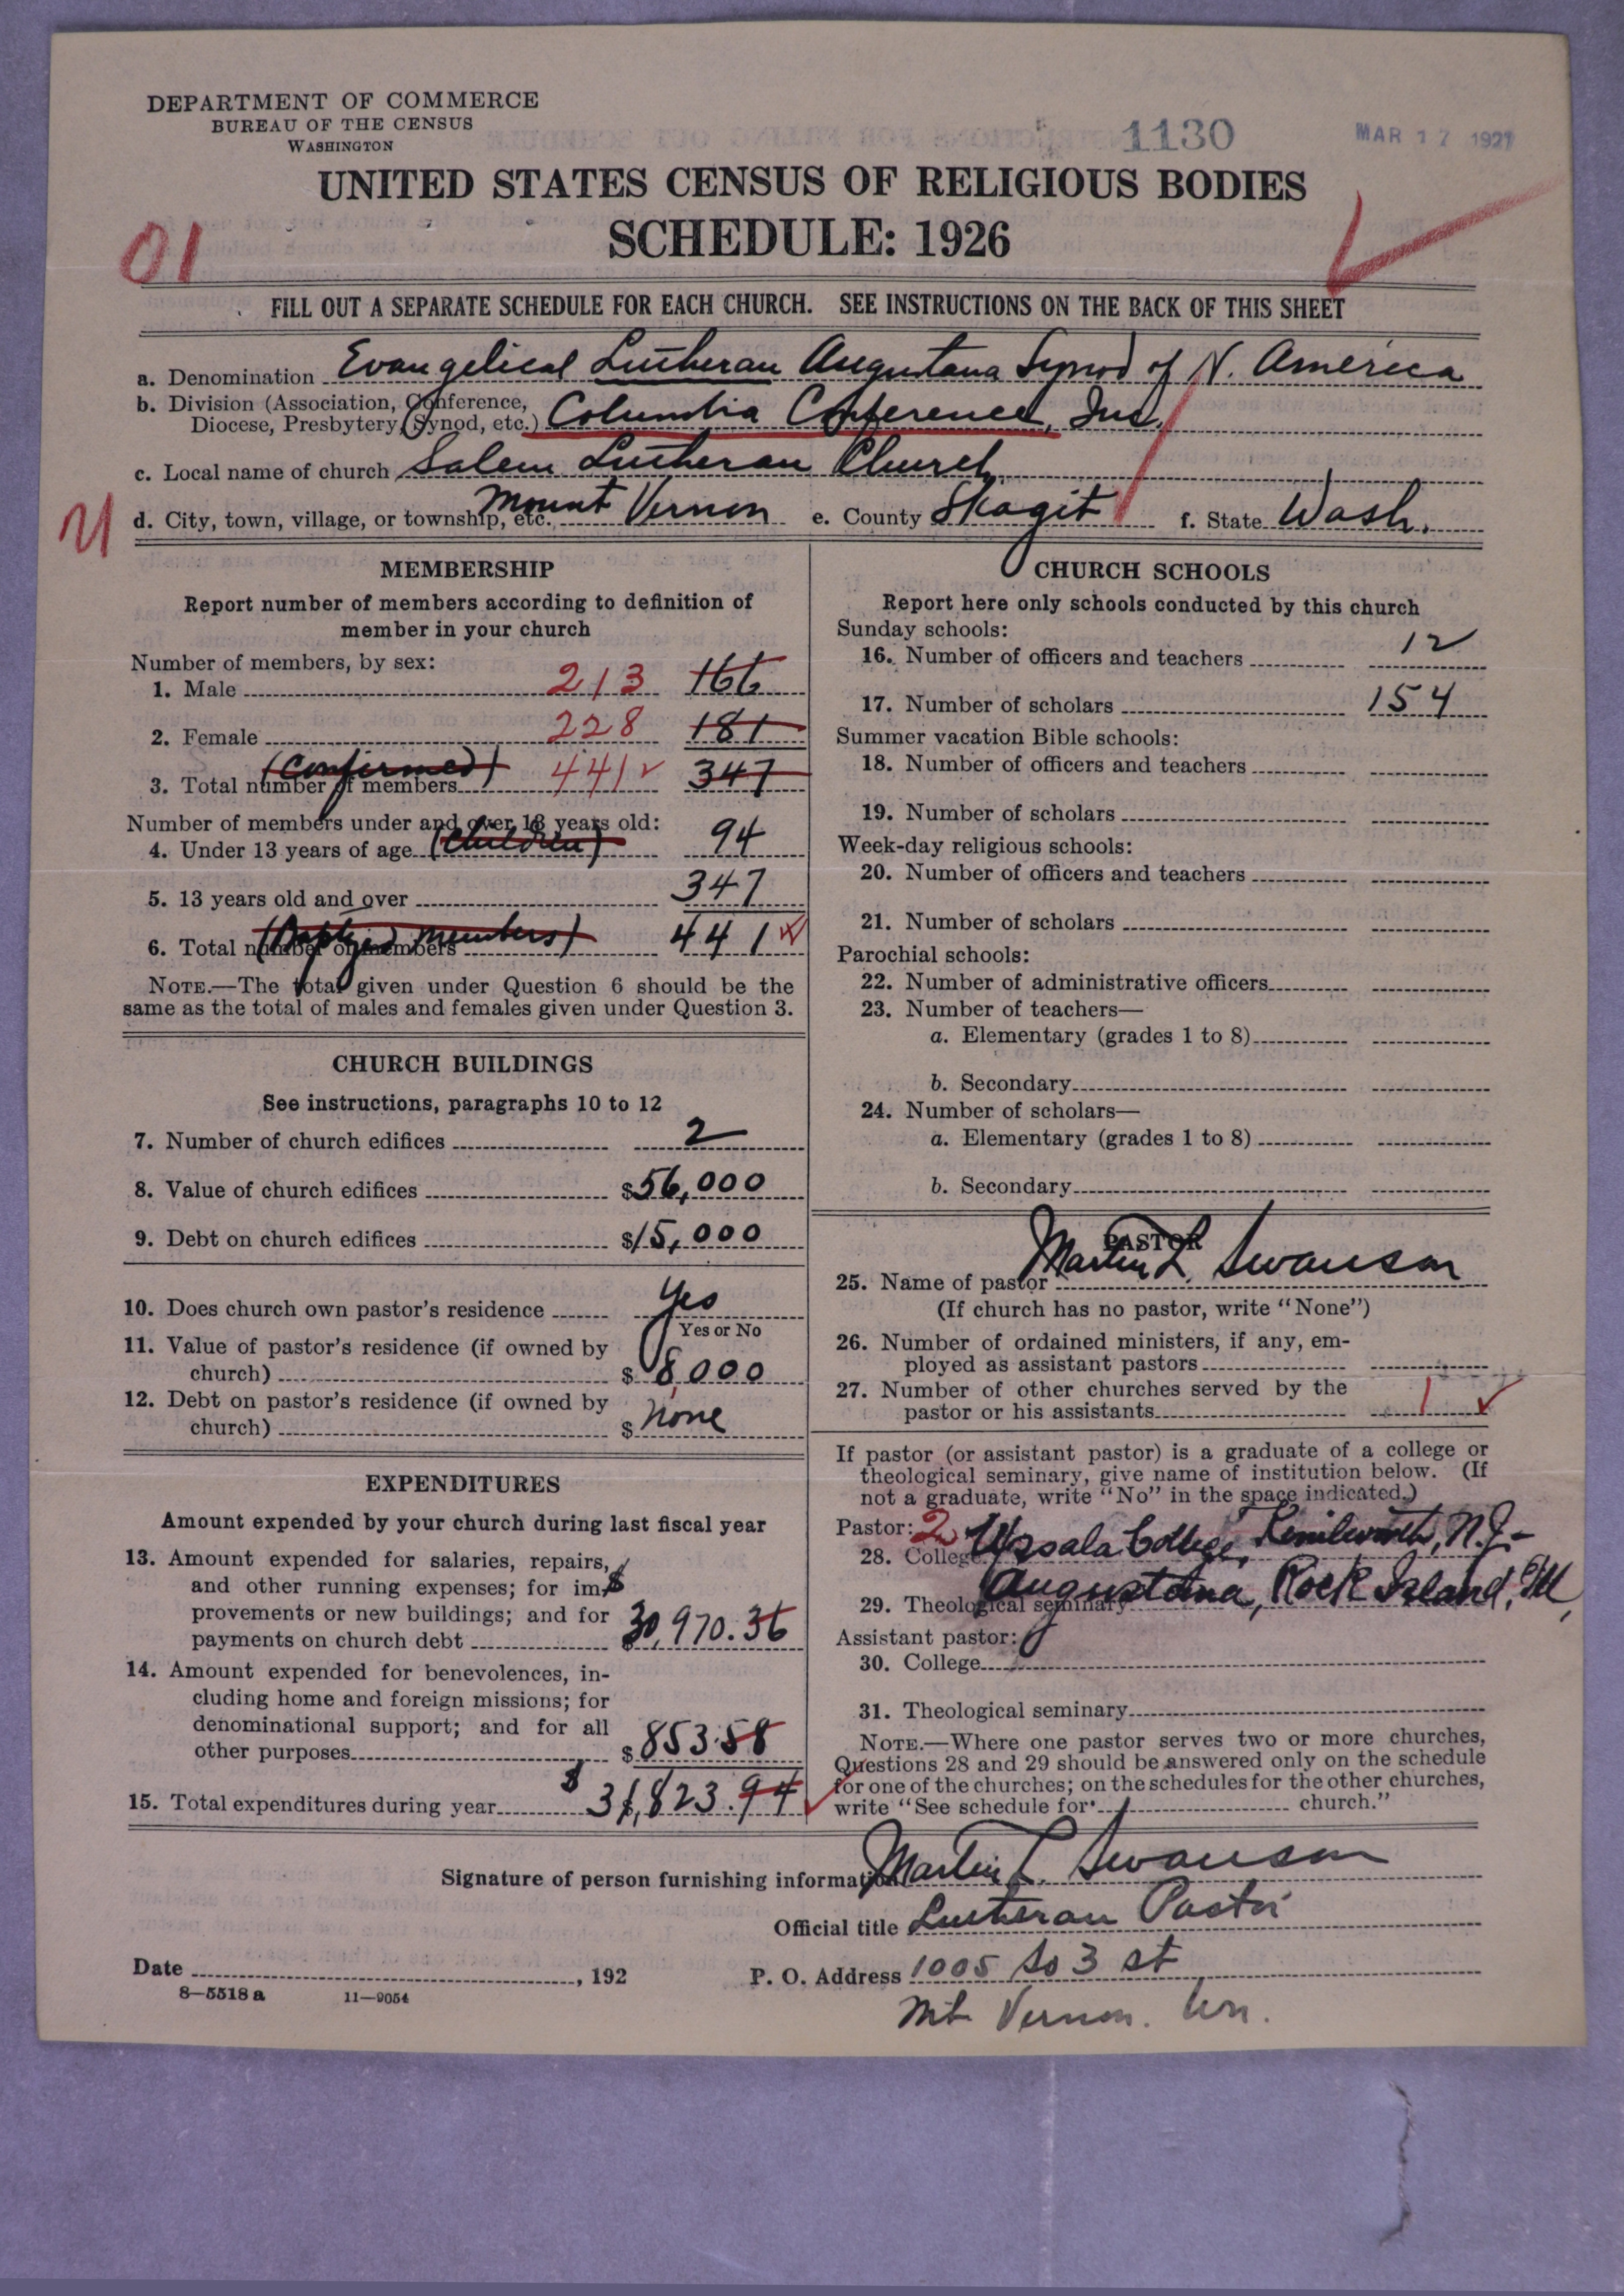 DEPARTMENT OF COMMERCE
BUREAU OF THE CENSUS
WASHINGTON
1130
MAR 17 1927
UNITED STATES CENSUS OF RELIGIOUS BODIES
SCHEDULE: 1926
01
FILL OUT A SEPARATE SCHEDULE FOR EACH CHURCH. SEE INSTRUCTIONS ON THE BACK OF THIS SHEET
a. Denomination Evangelical Lutheran Augustana Synod of N. America
b. Division (Association, Conference,
Diocese, Presbytery, Synod, etc.) Columbia Conference, Inc.
c. Local name of church Salem Lutheran Church
d. City, town, village, or township, etc. Mount Vernon e. County Skagit f. State Wash.
MEMBERSHIP
Report number of members according to definition of
member in your church
Number of members, by sex:
1. Male 213 166
2. Female 228 181
(Confirmed)
3. Total number of members 441 347
Number of members under and over 13 years old:
4. Under 13 years of age (Children) 94
5. 13 years old and over 347
(Baptized members)
6. Total number of members 441
NOTE.—The total given under Question 6 should be the
same as the total of males and females given under Question 3.
CHURCH BUILDINGS
See instructions, paragraphs 10 to 12
7. Number of church edifices 2
8. Value of church edifices $56,000
9. Debt on church edifices $15,000
10. Does church own pastor's residence Yes
Yes or No
11. Value of pastor's residence (if owned by
church) $ 8,000
12. Debt on pastor's residence (if owned by
church) $ none
EXPENDITURES
Amount expended by your church during last fiscal year
13. Amount expended for salaries, repairs,
and other running expenses; for im-
provements or new buildings; and for
payments on church debt $30,970.36
14. Amount expended for benevolences, in-
cluding home and foreign missions; for
denominational support; and for all
other purposes $853.58
15. Total expenditures during year $31,823.94
CHURCH SCHOOLS
Report here only schools conducted by this church
Sunday schools:
16. Number of officers and teachers 12
17. Number of scholars 154
Summer vacation Bible schools:
18. Number of officers and teachers
19. Number of scholars
Week-day religious schools:
20. Number of officers and teachers
21. Number of scholars
Parochial schools:
22. Number of administrative officers
23. Number of teachers—
a. Elementary (grades 1 to 8)
b. Secondary
24. Number of scholars—
a. Elementary (grades 1 to 8)
b. Secondary
PASTOR
25. Name of pastor Martin L. Swanson
(If church has no pastor, write "None")
26. Number of ordained ministers, if any, em-
ployed as assistant pastors
27. Number of other churches served by the
pastor or his assistants 1
If pastor (or assistant pastor) is a graduate of a college or
theological seminary, give name of institution below. (If
not a graduate, write "No" in the space indicated.)
Pastor: 2
28. College Upsala College, Kenilworth, N.J.
29. Theological seminary Augustana, Rock Island, Ill.
Assistant pastor:
30. College
31. Theological seminary
NOTE.—Where one pastor serves two or more churches,
Questions 28 and 29 should be answered only on the schedule
for one of the churches; on the schedules for the other churches,
write "See schedule for church."
Signature of person furnishing information Martin L. Swanson
Official title Lutheran Pastor
Date , 192
P. O. Address 1005 So 3 st
Mt Vernon. Wn.
8—5518 a 11—9054